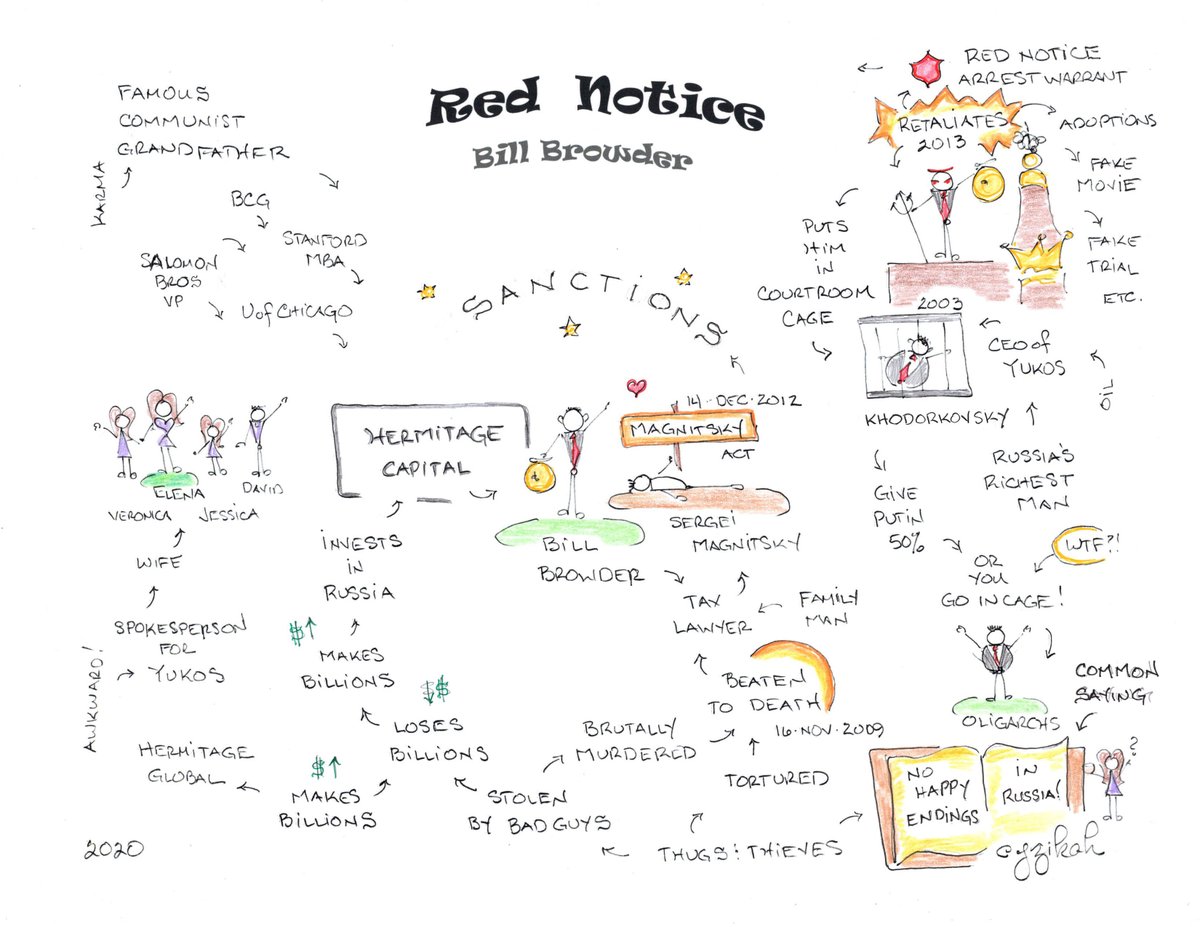 Red Notice
Bill Browder
FAMOUS
COMMUNIST
GRANDFATHER
KARMA
BCG
STANFORD
MBA
SALOMON
BROS
VP
U of CHICAGO
SANCTIONS
RED NOTICE
ARREST WARRANT
RETALIATES
2013
ADOPTIONS
FAKE
MOVIE
FAKE
TRIAL
ETC.
PUTS
HIM
IN
COURTROOM
CAGE
2003
CEO of
YUKOS
OIL
KHODORKOVSKY
RUSSIA'S
RICHEST
MAN
GIVE
PUTIN
50%
OR
YOU
GO IN CAGE!
WTF?!
OLIGARCHS
COMMON
SAYING
NO
HAPPY
ENDINGS
IN
RUSSIA!
?
HERMITAGE
CAPITAL
14·DEC·2012
MAGNITSKY
ACT
SERGEI
MAGNITSKY
BILL
BROWDER
TAX
LAWYER
FAMILY
MAN
BEATEN
TO DEATH
16·NOV·2009
TORTURED
BRUTALLY
MURDERED
STOLEN
BY BAD GUYS
THUGS & THIEVES
ELENA
DAVID
VERONICA
JESSICA
WIFE
SPOKESPERSON
FOR
YUKOS
AWKWARD!
INVESTS
IN
RUSSIA
$↑
MAKES
BILLIONS
↓$
LOSES
BILLIONS
$↑
MAKES
BILLIONS
HERMITAGE
GLOBAL
2020